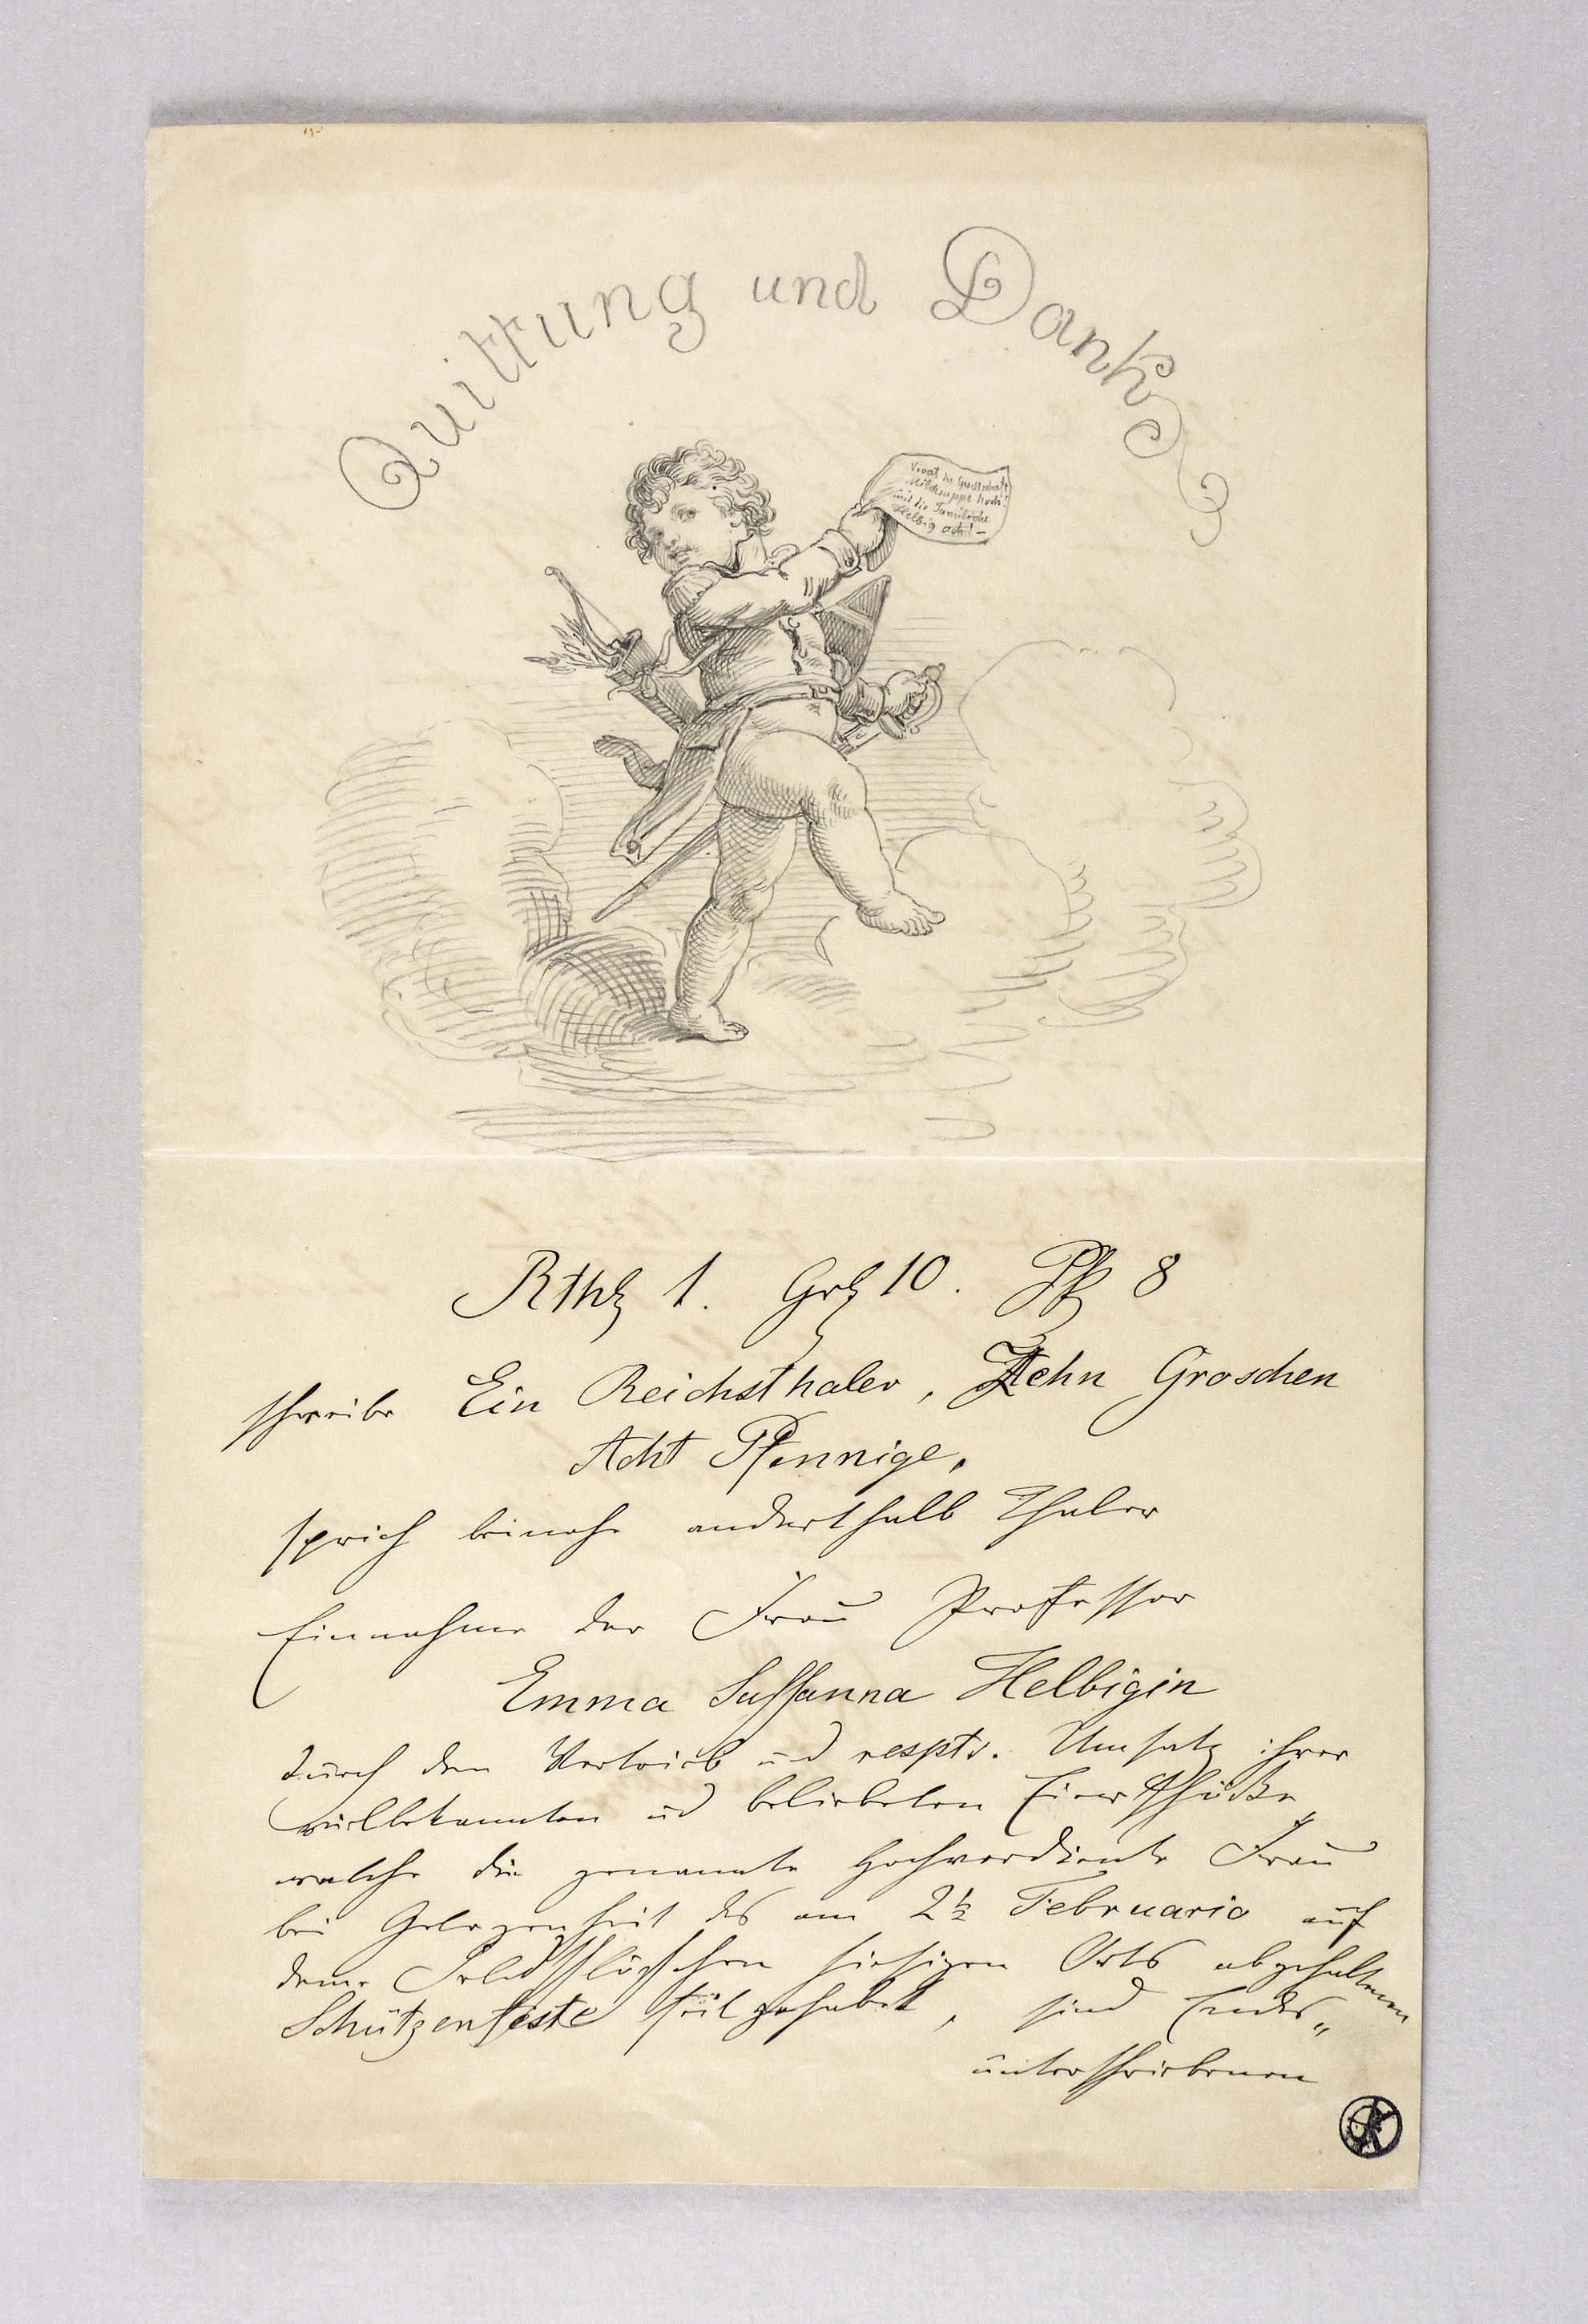 Quittung und Dank
Vivat die Gesellschaft
Milchsuppe hoch!
und die Familie
Helbig och! –
Rthlr 1. Grl 10. Pf 8
schreibe Ein Reichsthaler, Zehn Groschen
Acht Pfennige,
sprich beinahe anderthalb Thaler
Einnahme der Frau Professor
Emma Sussanna Helbigin
durch den Vertrieb und resptv. Umsatz ihrer
vielbekannten und beliebten
welche die genannte hochverdiente Frau
bei Gelegenheit des am 2½ Februario auf
dem Feldschlösschen hiesigen Orts abgehaltenen
Schützenfeste feilgehabt, sind Endes„
unterschriebenen